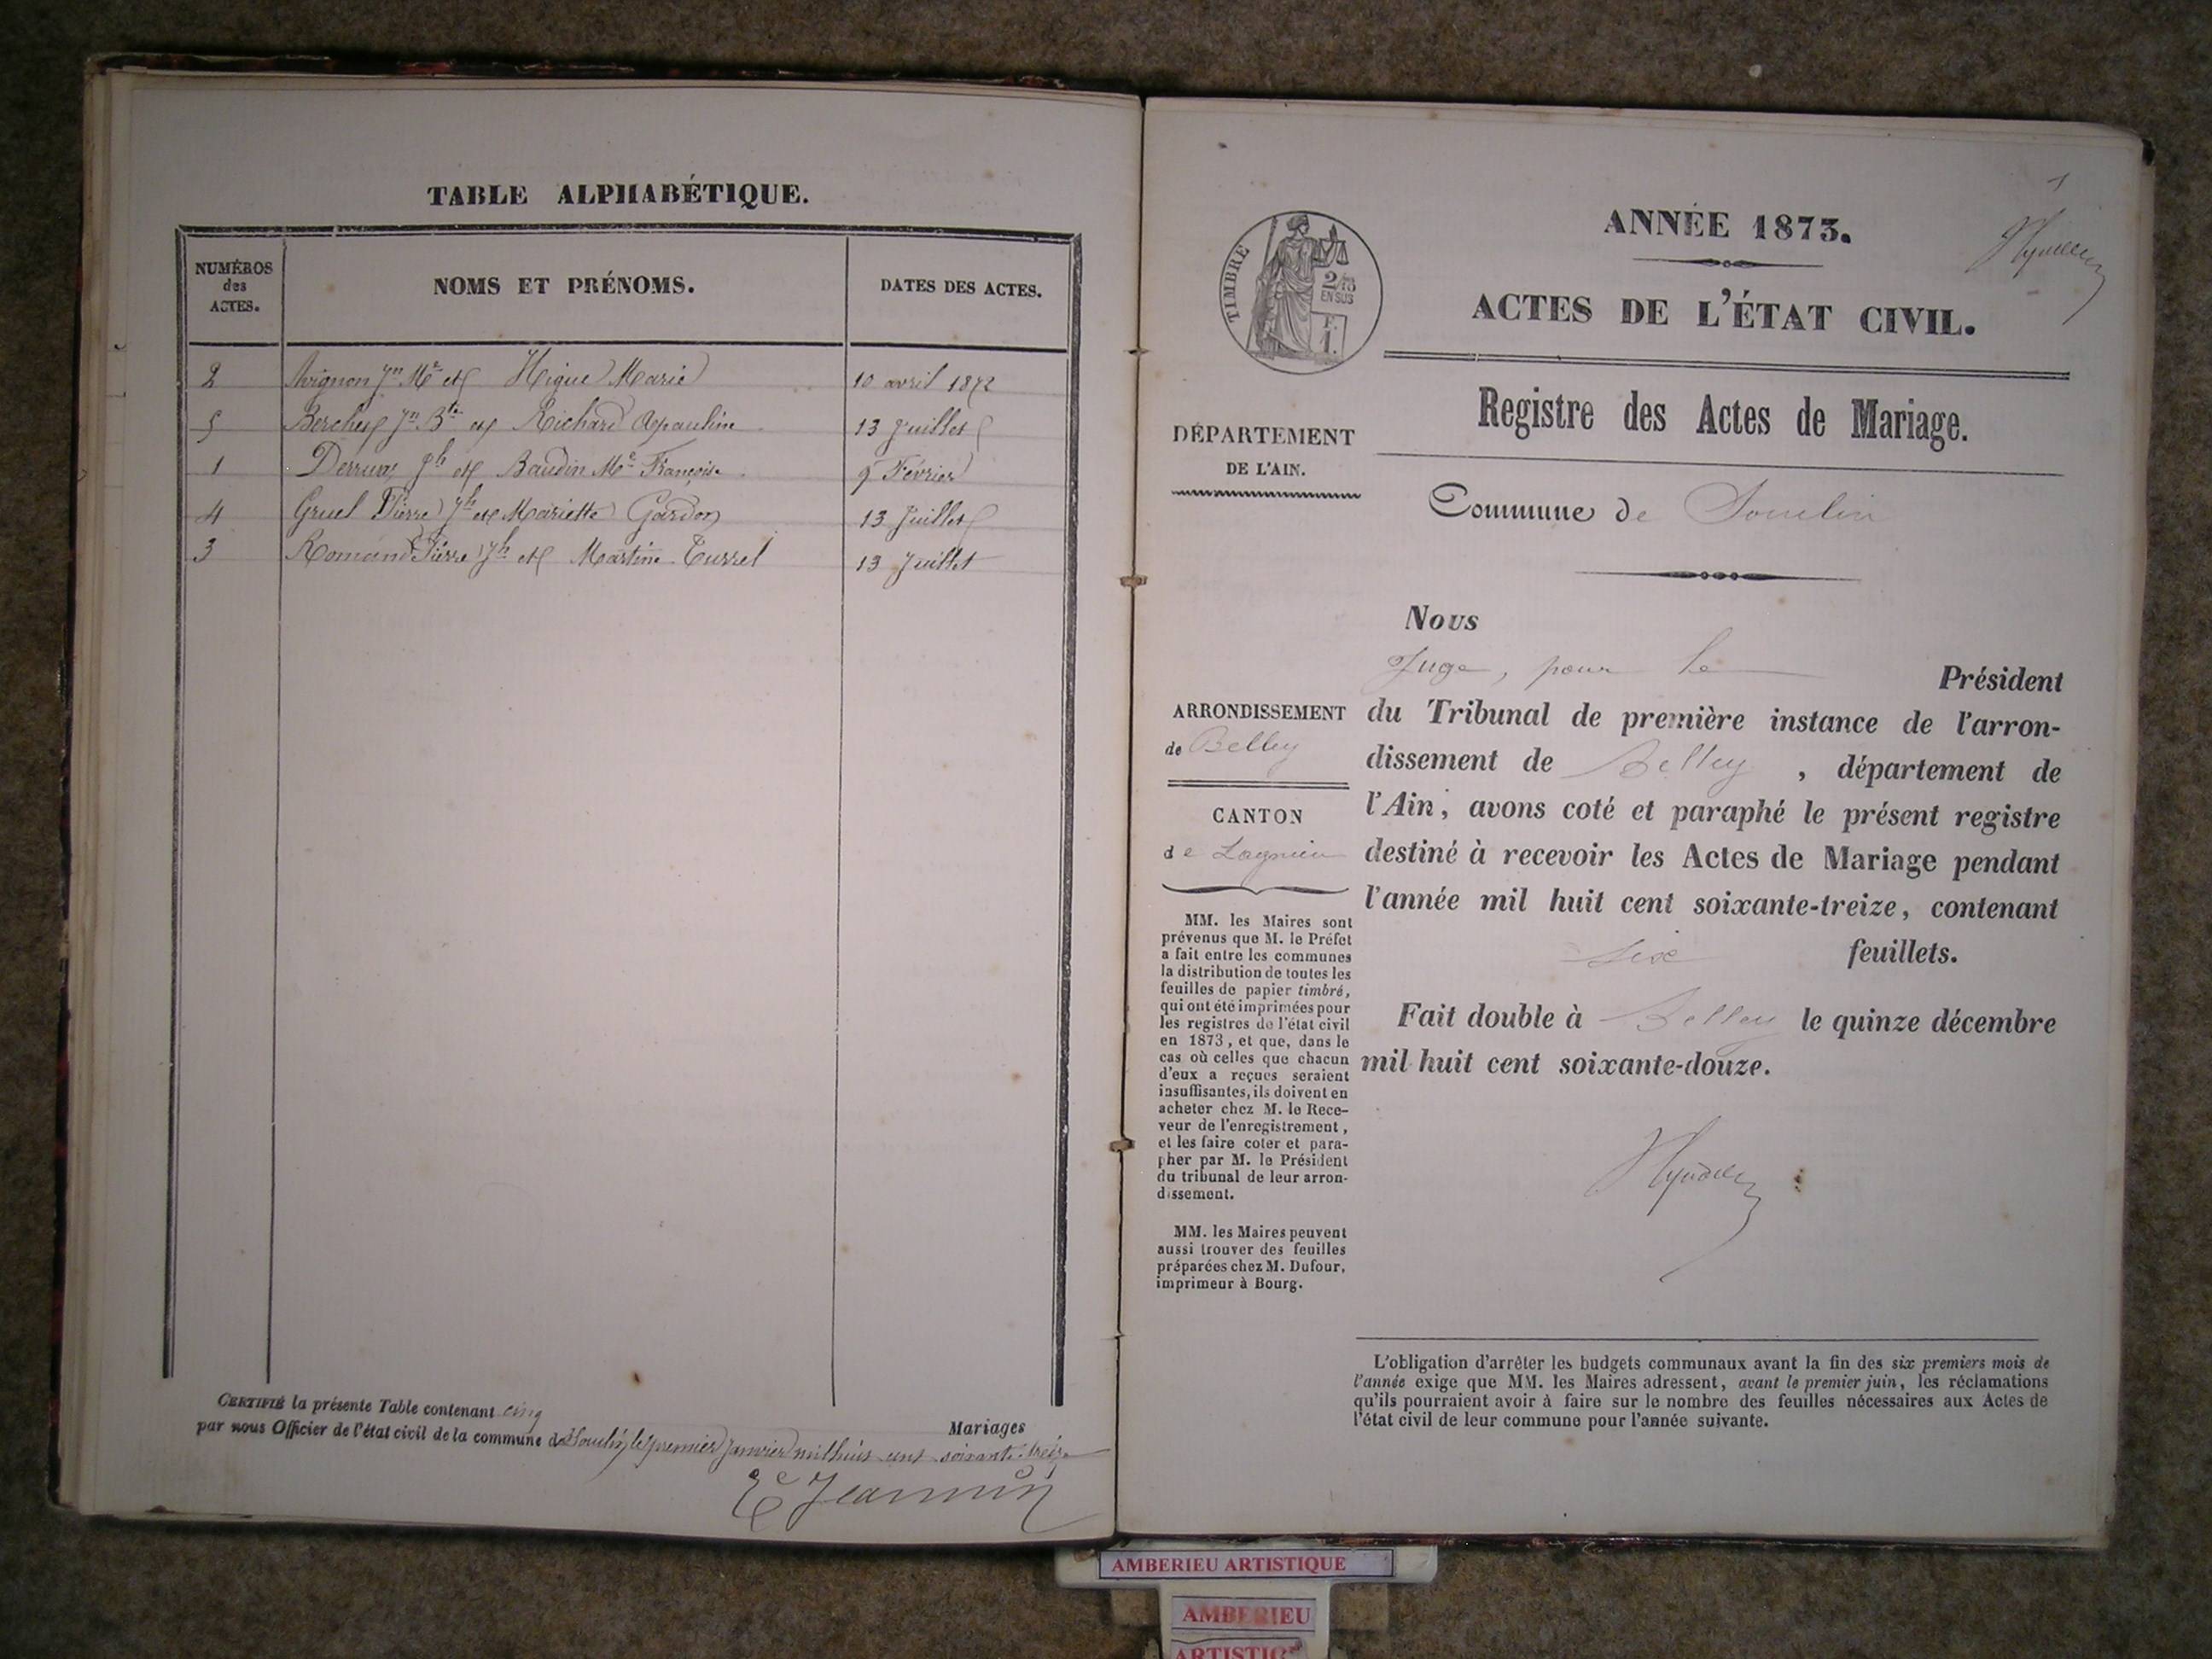 TABLE ALPHABÉTIQUE.
NUMÉROS des ACTES.
NOMS ET PRÉNOMS.
DATES DES ACTES.
2 Avignon Jn Me et Higue Marie 10 avril 1872
5 Berchet Jn Bte et Richard 13 Juillet
1 Derrux Jh et Baudin Me Françoise 9 Février
4 Gruel Pierre Jh et Mariette Gardon 13 Juillet
3 Romand Pierre Jh et Martine Turrel 13 Juillet
CERTIFIÉ la présente Table contenant cinq Mariages
par nous Officier de l'état civil de la commune de Souclin, le premier Janvier mil huit cent soixante treize
Jeannin
1
TIMBRE
2/10 EN SUS
ANNÉE 1873.
ACTES DE L'ÉTAT CIVIL.
Registre des Actes de Mariage.
DÉPARTEMENT
DE L'AIN.
Commune de Souclin
ARRONDISSEMENT
de Belley
CANTON
de Lagnieu
MM. les Maires sont
prévenus que M. le Préfet
a fait entre les communes
la distribution de toutes les
feuilles de papier timbré,
qui ont été imprimées pour
les registres de l'état civil
en 1873, et que, dans le
cas où celles que chacun
d'eux a reçues seraient
insuffisantes, ils doivent en
acheter chez M. le Rece-
veur de l'enregistrement,
et les faire coter et para-
pher par M. le Président
du tribunal de leur arron-
dissement.
MM. les Maires peuvent
aussi trouver des feuilles
préparées chez M. Dufour,
imprimeur à Bourg.
Nous
Juge, pour le Président
du Tribunal de première instance de l'arron-
dissement de Belley, département de
l'Ain, avons coté et paraphé le présent registre
destiné à recevoir les Actes de Mariage pendant
l'année mil huit cent soixante-treize, contenant
six feuillets.
Fait double à Belley le quinze décembre
mil huit cent soixante-douze.
L'obligation d'arrêter les budgets communaux avant la fin des six premiers mois de
l'année exige que MM. les Maires adressent, avant le premier juin, les réclamations
qu'ils pourraient avoir à faire sur le nombre des feuilles nécessaires aux Actes de
l'état civil de leur commune pour l'année suivante.
AMBERIEU ARTISTIQUE
AMBERIEU
ARTISTIQ